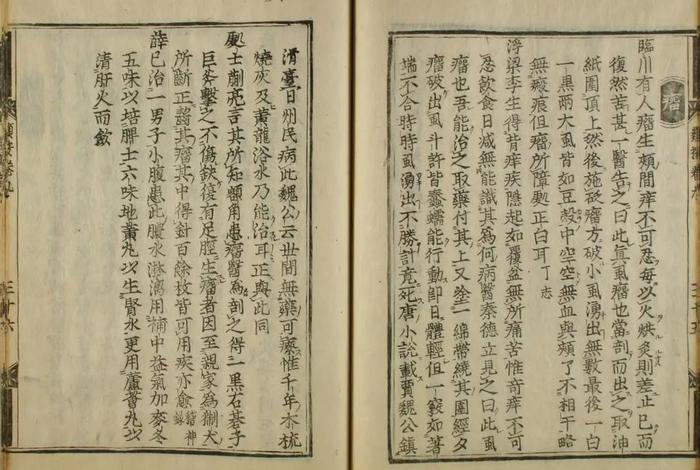 瘤
臨川有人瘤生頰間痒不可忍每以火烘炙則差止已而
復然苦甚一醫告之曰此真虱瘤也當剖而出之取油
紙圍頂上然後施砭瘤方破小虱湧出無數最後一白
一黑兩大虱皆如豆殼中空空無血與頰了不相干略
無瘢痕但瘤所障處正白耳丁志
浮梁李生得背痒疾隱起如覆盆無所痛苦惟奇痒不可
忍飲食日減無能識其為何病醫秦德立見之曰此虱
瘤也吾能治之取藥付其上又塗一綿帶繞其圍經夕
瘤破出虱斗許皆蠢蠕能行動即日體輕但一竅如箸
端不合時時虱湧出不勝計竟死唐小說載賈魏公鎮
滑臺日州民病此魏公云世間無藥可療惟千年木梳
燒灰及黃龍浴水乃能治耳正與此同
處士蒯亮言其所知額角患瘤醫為剖之得一黑石碁子
巨斧擊之不傷缺復有足脛生瘤者因至親家為猘犬
所斷正齧其瘤其中得針百餘枚皆可用疾亦愈稽神錄
薛已治一男子小腹患此膿水淋漓用補中益氣加麥冬
五味以培脾土六味地黃丸以生腎水更用蘆薈丸以
清肝火而斂